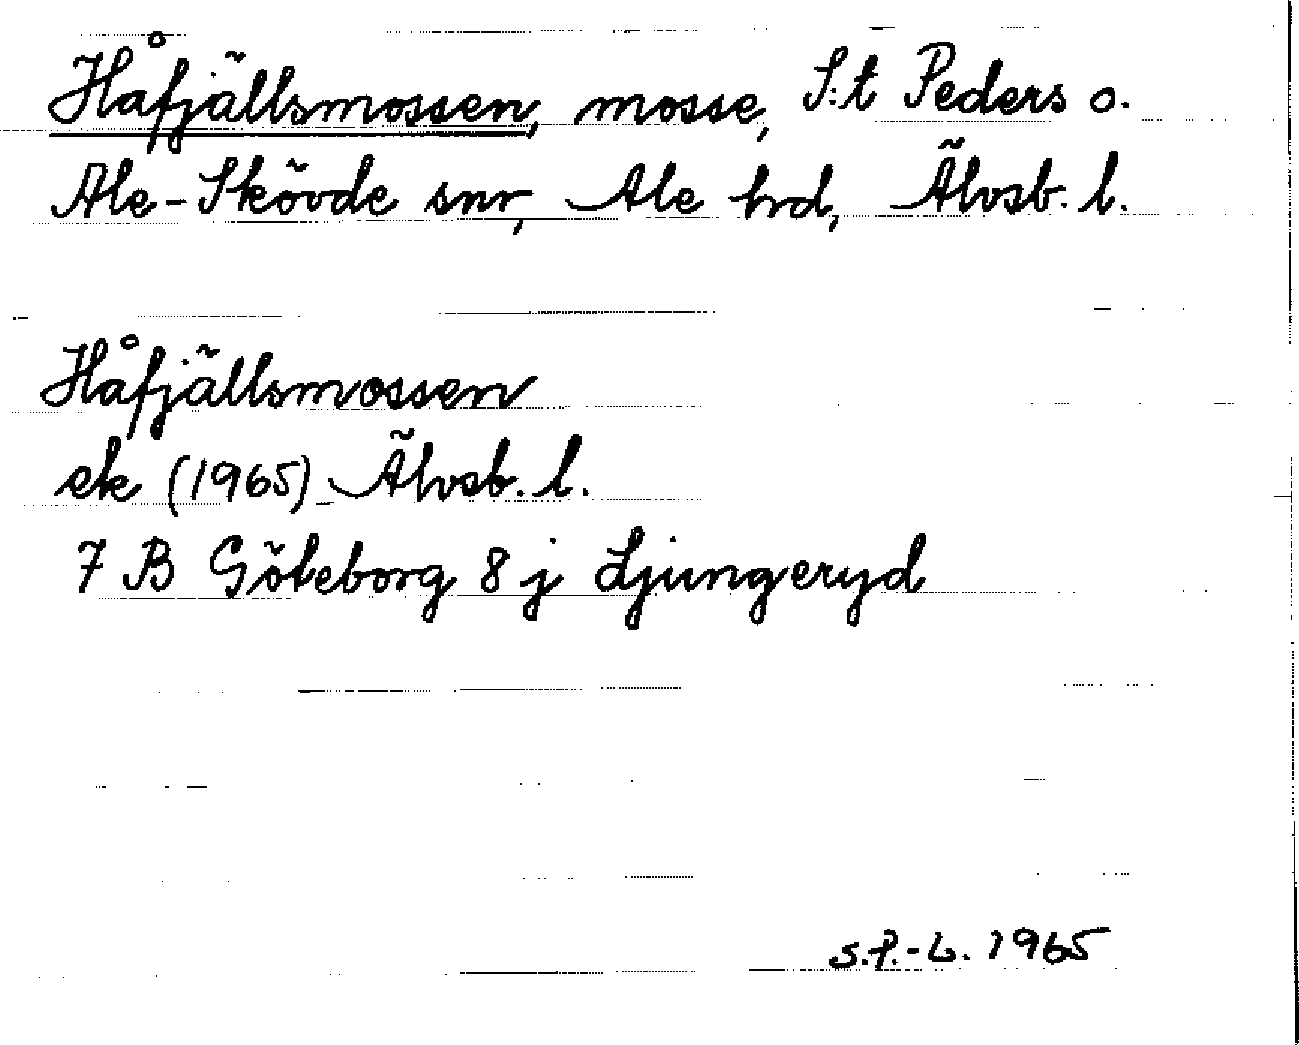 Håfjällsmossen, mosse, S:t Peders o.
Ale-Skövde snr, Ale hrd, Älvsb. l.
Håfjällsmossen
ek (1965) Älvsb. l.
7 B Göteborg 8 j Ljungeryd
S.P.-L. 1965